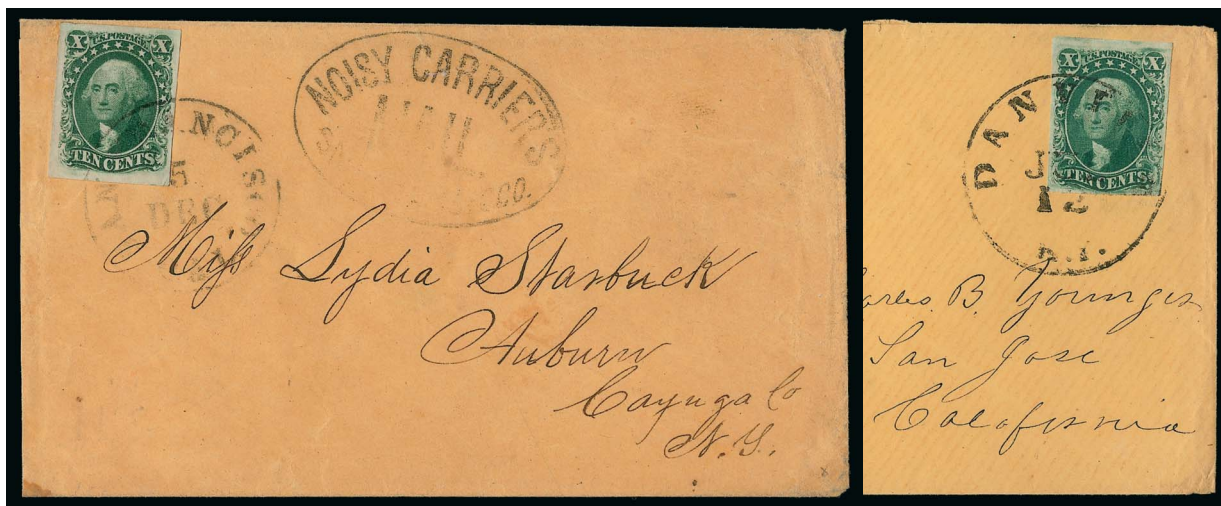 X U.S. POSTAGE X
TEN CENTS
NCIS
5
DEC
NOISY CARRIER'S
MAIL
CO.
Miss Lydia Starbuck
Auburn
Cayuga Co
N.Y.
X U.S. POSTAGE X
TEN CENTS
DAN
12
R.I.
arles B. Younger
San Jose
California